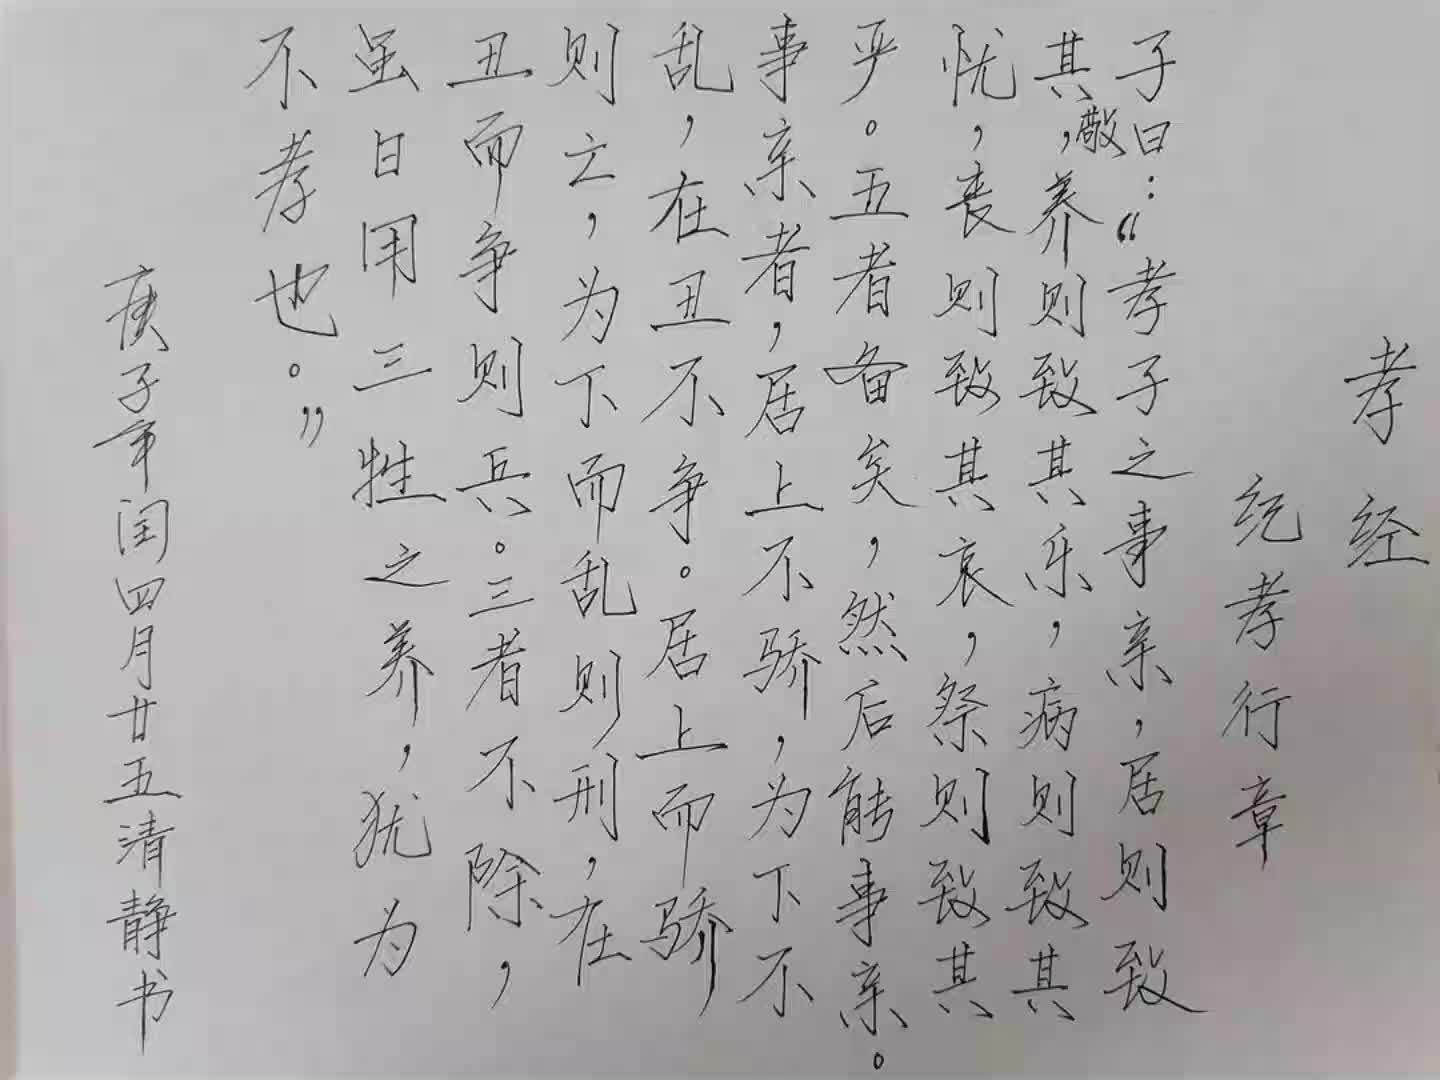 孝经
纪孝行章
子曰：“孝子之事亲，居则致
其敬，养则致其乐，病则致其
忧，丧则致其哀，祭则致其
严。五者备矣，然后能事亲。
事亲者，居上不骄，为下不
乱，在丑不争。居上而骄
则亡，为下而乱则刑，在
丑而争则兵。三者不除，
虽日用三牲之养，犹为
不孝也。”
庚子年闰四月廿五清静书